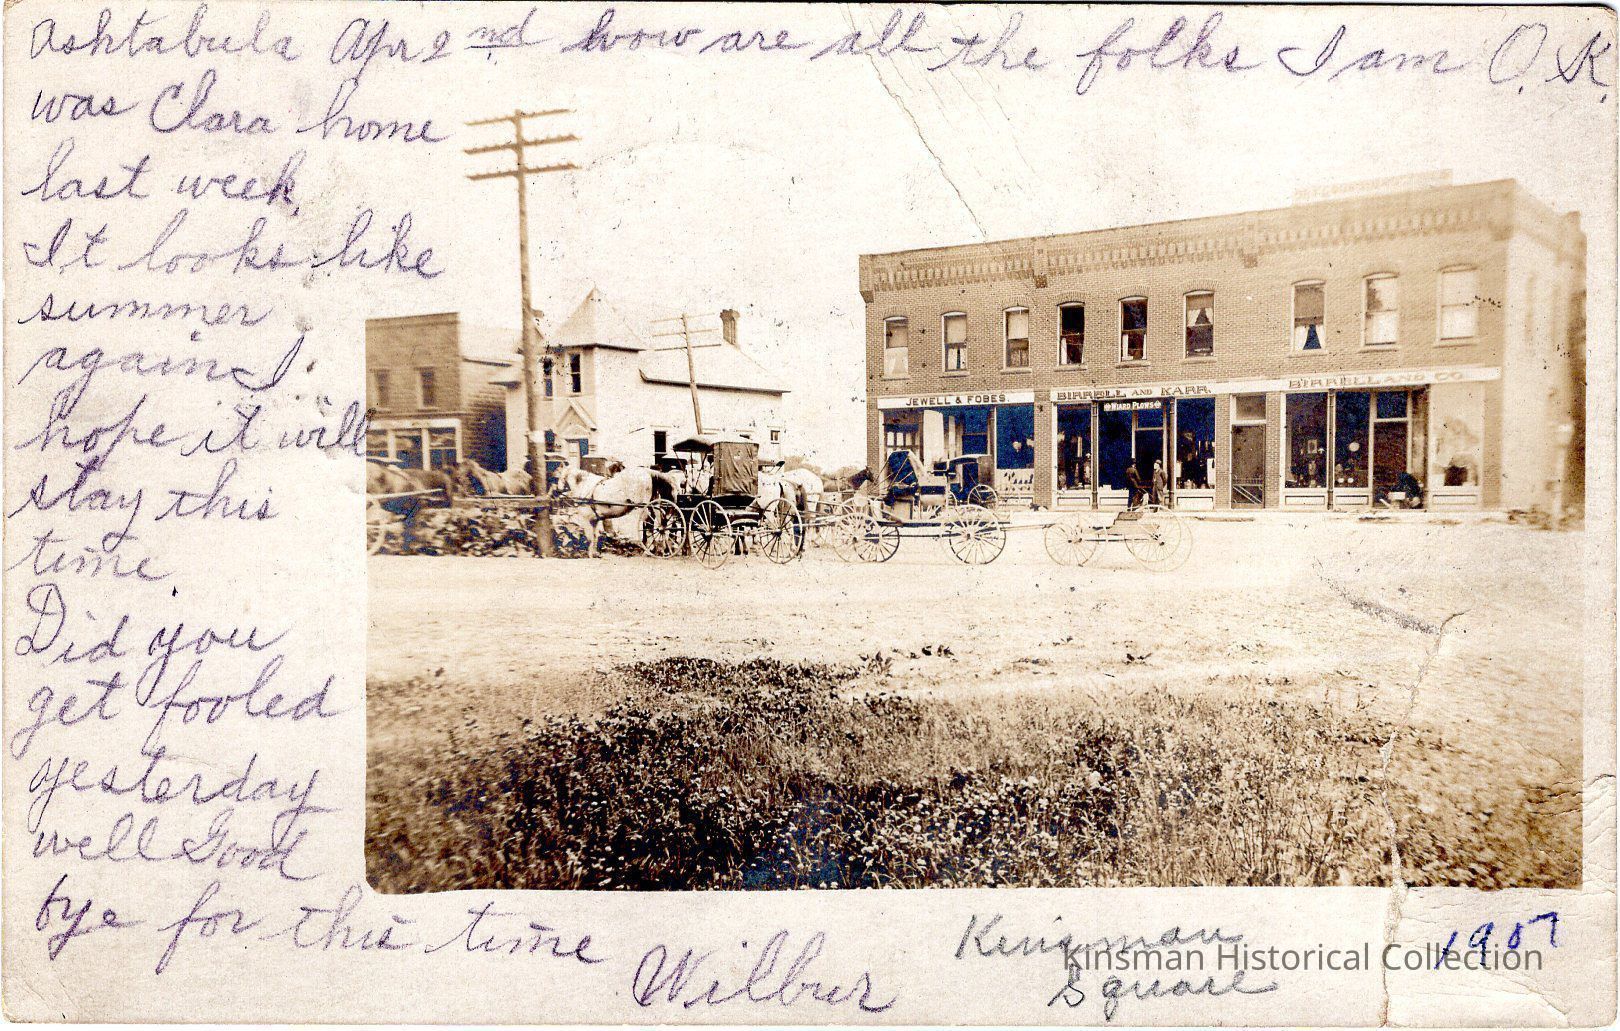 Ashtabula Apr 2nd how are all the folks I am O.K.
was Clara home
last week.
It looks like
summer
again I
hope it will
stay this
time.
Did you
get fooled
yesterday
well Good
bye for this time
Wilbur
JEWELL & FOBES.
BIRRELL AND KARR.
WIARD PLOWS
BIRRELL AND CO.
Kinsman
Square
1907
Kinsman Historical Collection